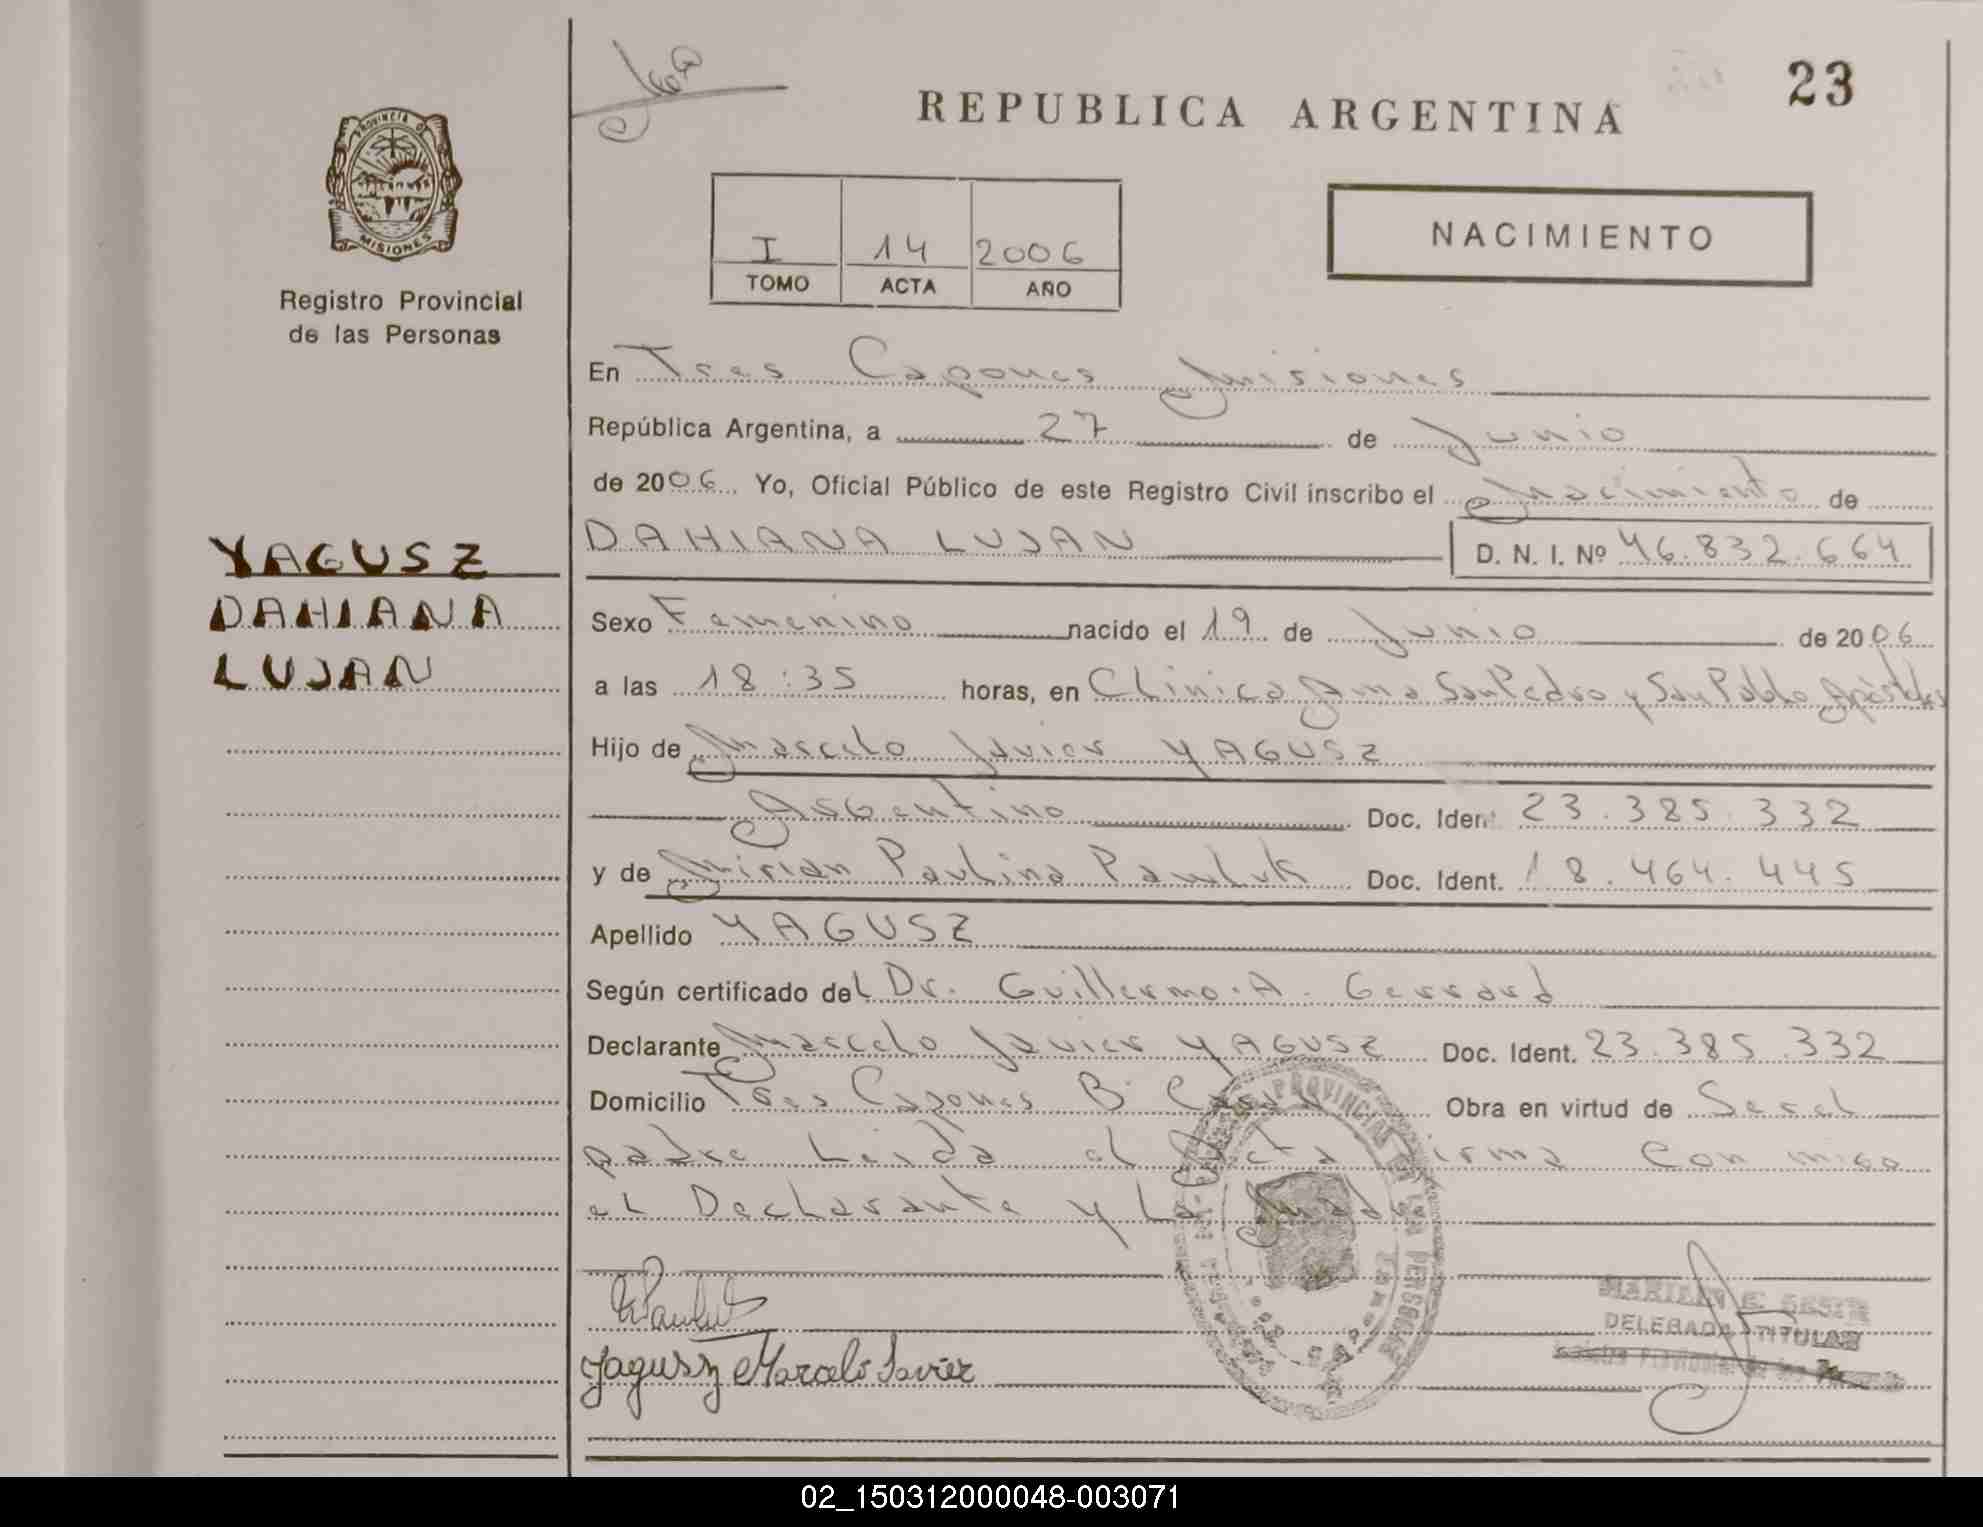 23
REPUBLICA ARGENTINA
PROVINCIA DE
MISIONES
Registro Provincial
de las Personas
I 14 2006
TOMO ACTA AÑO
NACIMIENTO
En Tres Capones Misiones
República Argentina, a 27 de Junio
de 2006. Yo, Oficial Público de este Registro Civil inscribo el Nacimiento de
DAHIANA LUJAN D. N. I. Nº 46.832.664
YAGUSZ
DAHIANA
LUJAN
Sexo Femenino nacido el 19 de Junio de 2006
a las 18:35 horas, en Clinica San Pedro y San Pablo Apóstoles
Hijo de Marcelo Javier YAGUSZ
Argentino Doc. Ident. 23.385.332
y de Mirian Paulina Pawluk Doc. Ident. 18.464.445
Apellido YAGUSZ
Según certificado del Dr. Guillermo. A. Gerrard
Declarante Marcelo Javier YAGUSZ Doc. Ident. 23.385.332
Domicilio Tres Capones B° Obra en virtud de Ser el
padre Leida el Acta Firma con migo
el Declarante y La Madre
Yagusz Marcelo Javier
DELEGADA TITULAR
02_150312000048-003071